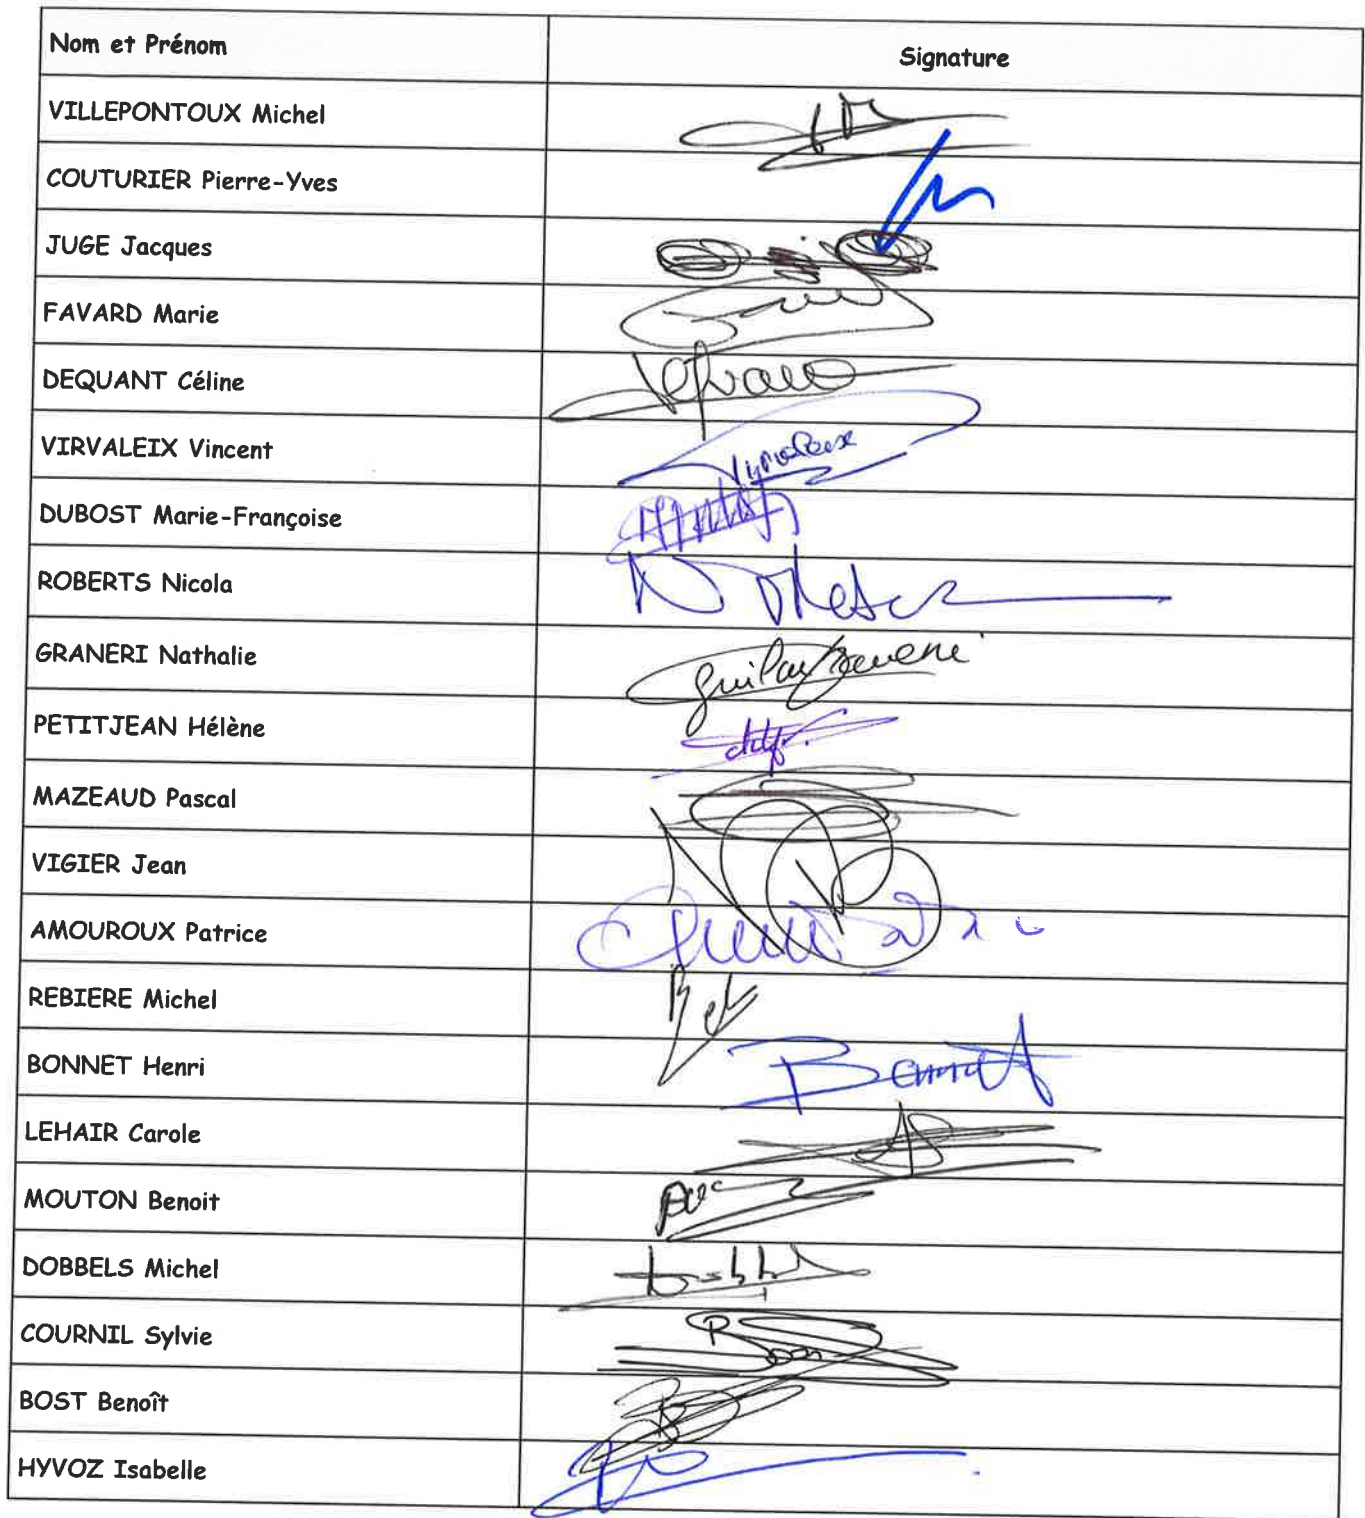 Nom et Prénom Signature
VILLEPONTOUX Michel
COUTURIER Pierre-Yves
JUGE Jacques
FAVARD Marie
DEQUANT Céline
VIRVALEIX Vincent
DUBOST Marie-Françoise
ROBERTS Nicola
GRANERI Nathalie
PETITJEAN Hélène
MAZEAUD Pascal
VIGIER Jean
AMOUROUX Patrice
REBIERE Michel
BONNET Henri Bonnet
LEHAIR Carole
MOUTON Benoit
DOBBELS Michel
COURNIL Sylvie
BOST Benoît
HYVOZ Isabelle